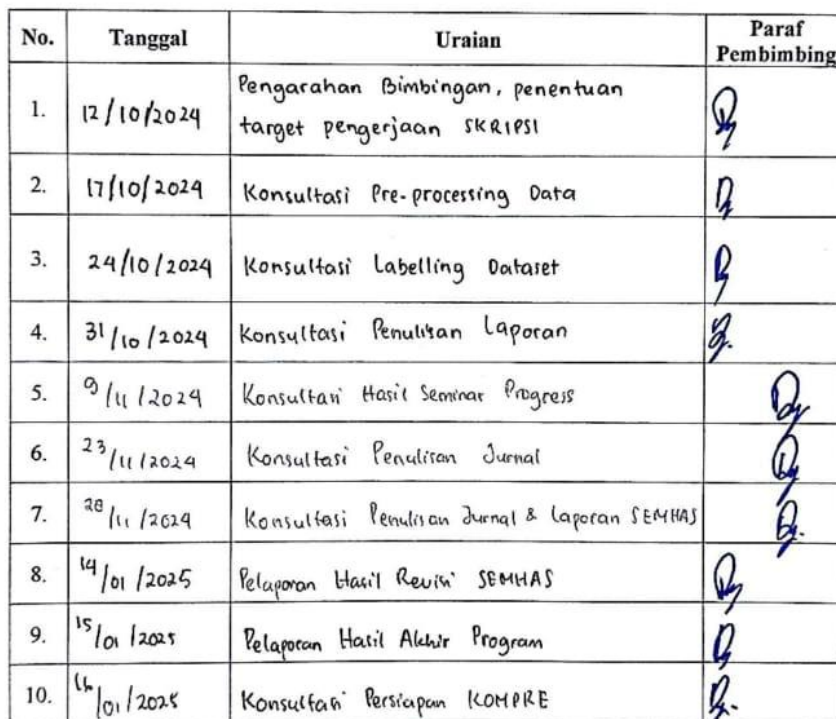 No. Tanggal Uraian Paraf
Pembimbing
Pengarahan Bimbingan, penentuan
1. 12/10/2024
target pengerjaan SKRIPSI
2. 17/10/2024 Konsultasi Pre-processing Data
3. 24/10/2024 Konsultasi Labelling Dataset
4. 31/10/2024 Konsultasi Penulisan Laporan
5. 9/11/2024 Konsultasi Hasil Seminar Progress
6. 23/11/2024 Konsultasi Penulisan Jurnal
7. 28/11/2024 Konsultasi Penulisan Jurnal & Laporan SEMHAS
8. 14/01/2025 Pelaporan Hasil Revisi SEMHAS
9. 15/01/2025 Pelaporan Hasil Akhir Program
10. 16/01/2025 Konsultasi Persiapan KOMPRE